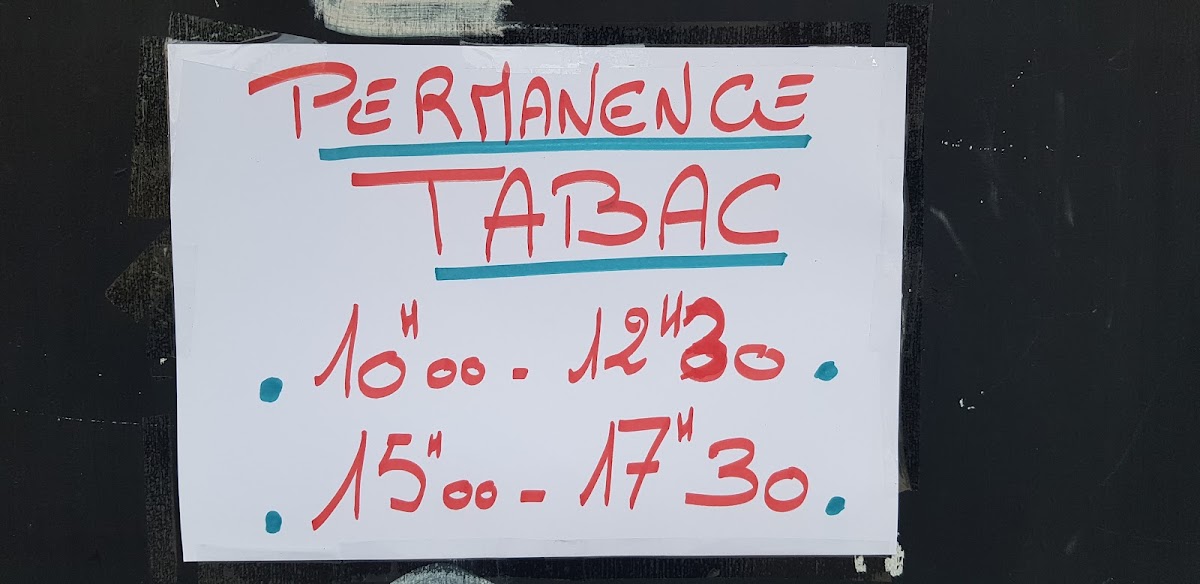 PERMANENCE
TABAC
. 10H00 - 12H30 .
. 15H00 - 17H30 .